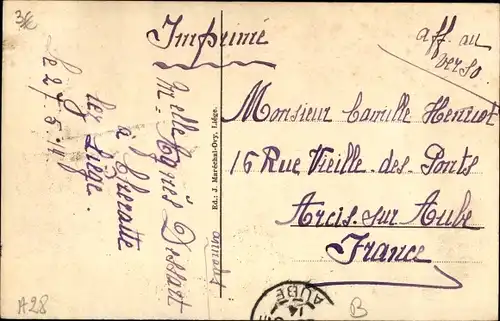 Imprimé
aff. au
verso
Monsieur Camille Henriot
16 Rue Vieille-des-Ponts
Arcis-sur Aube
France
Melle Agnès
à Chevratte
lez Liège.
Le 27.5.14
Ed.: J. Maréchal-Ory, Liége.
AUBE
14
A28
B